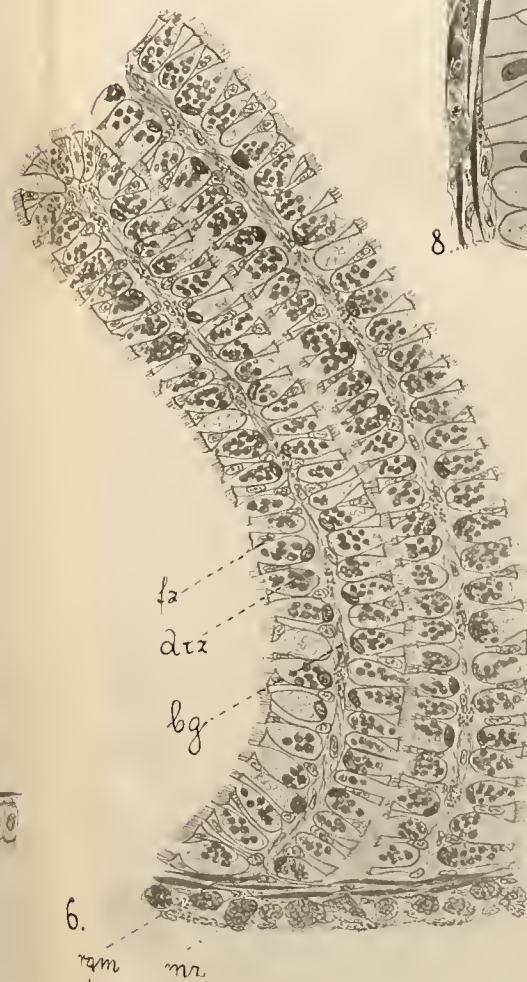 8.
fz
drz
bg
6.
rgm nz